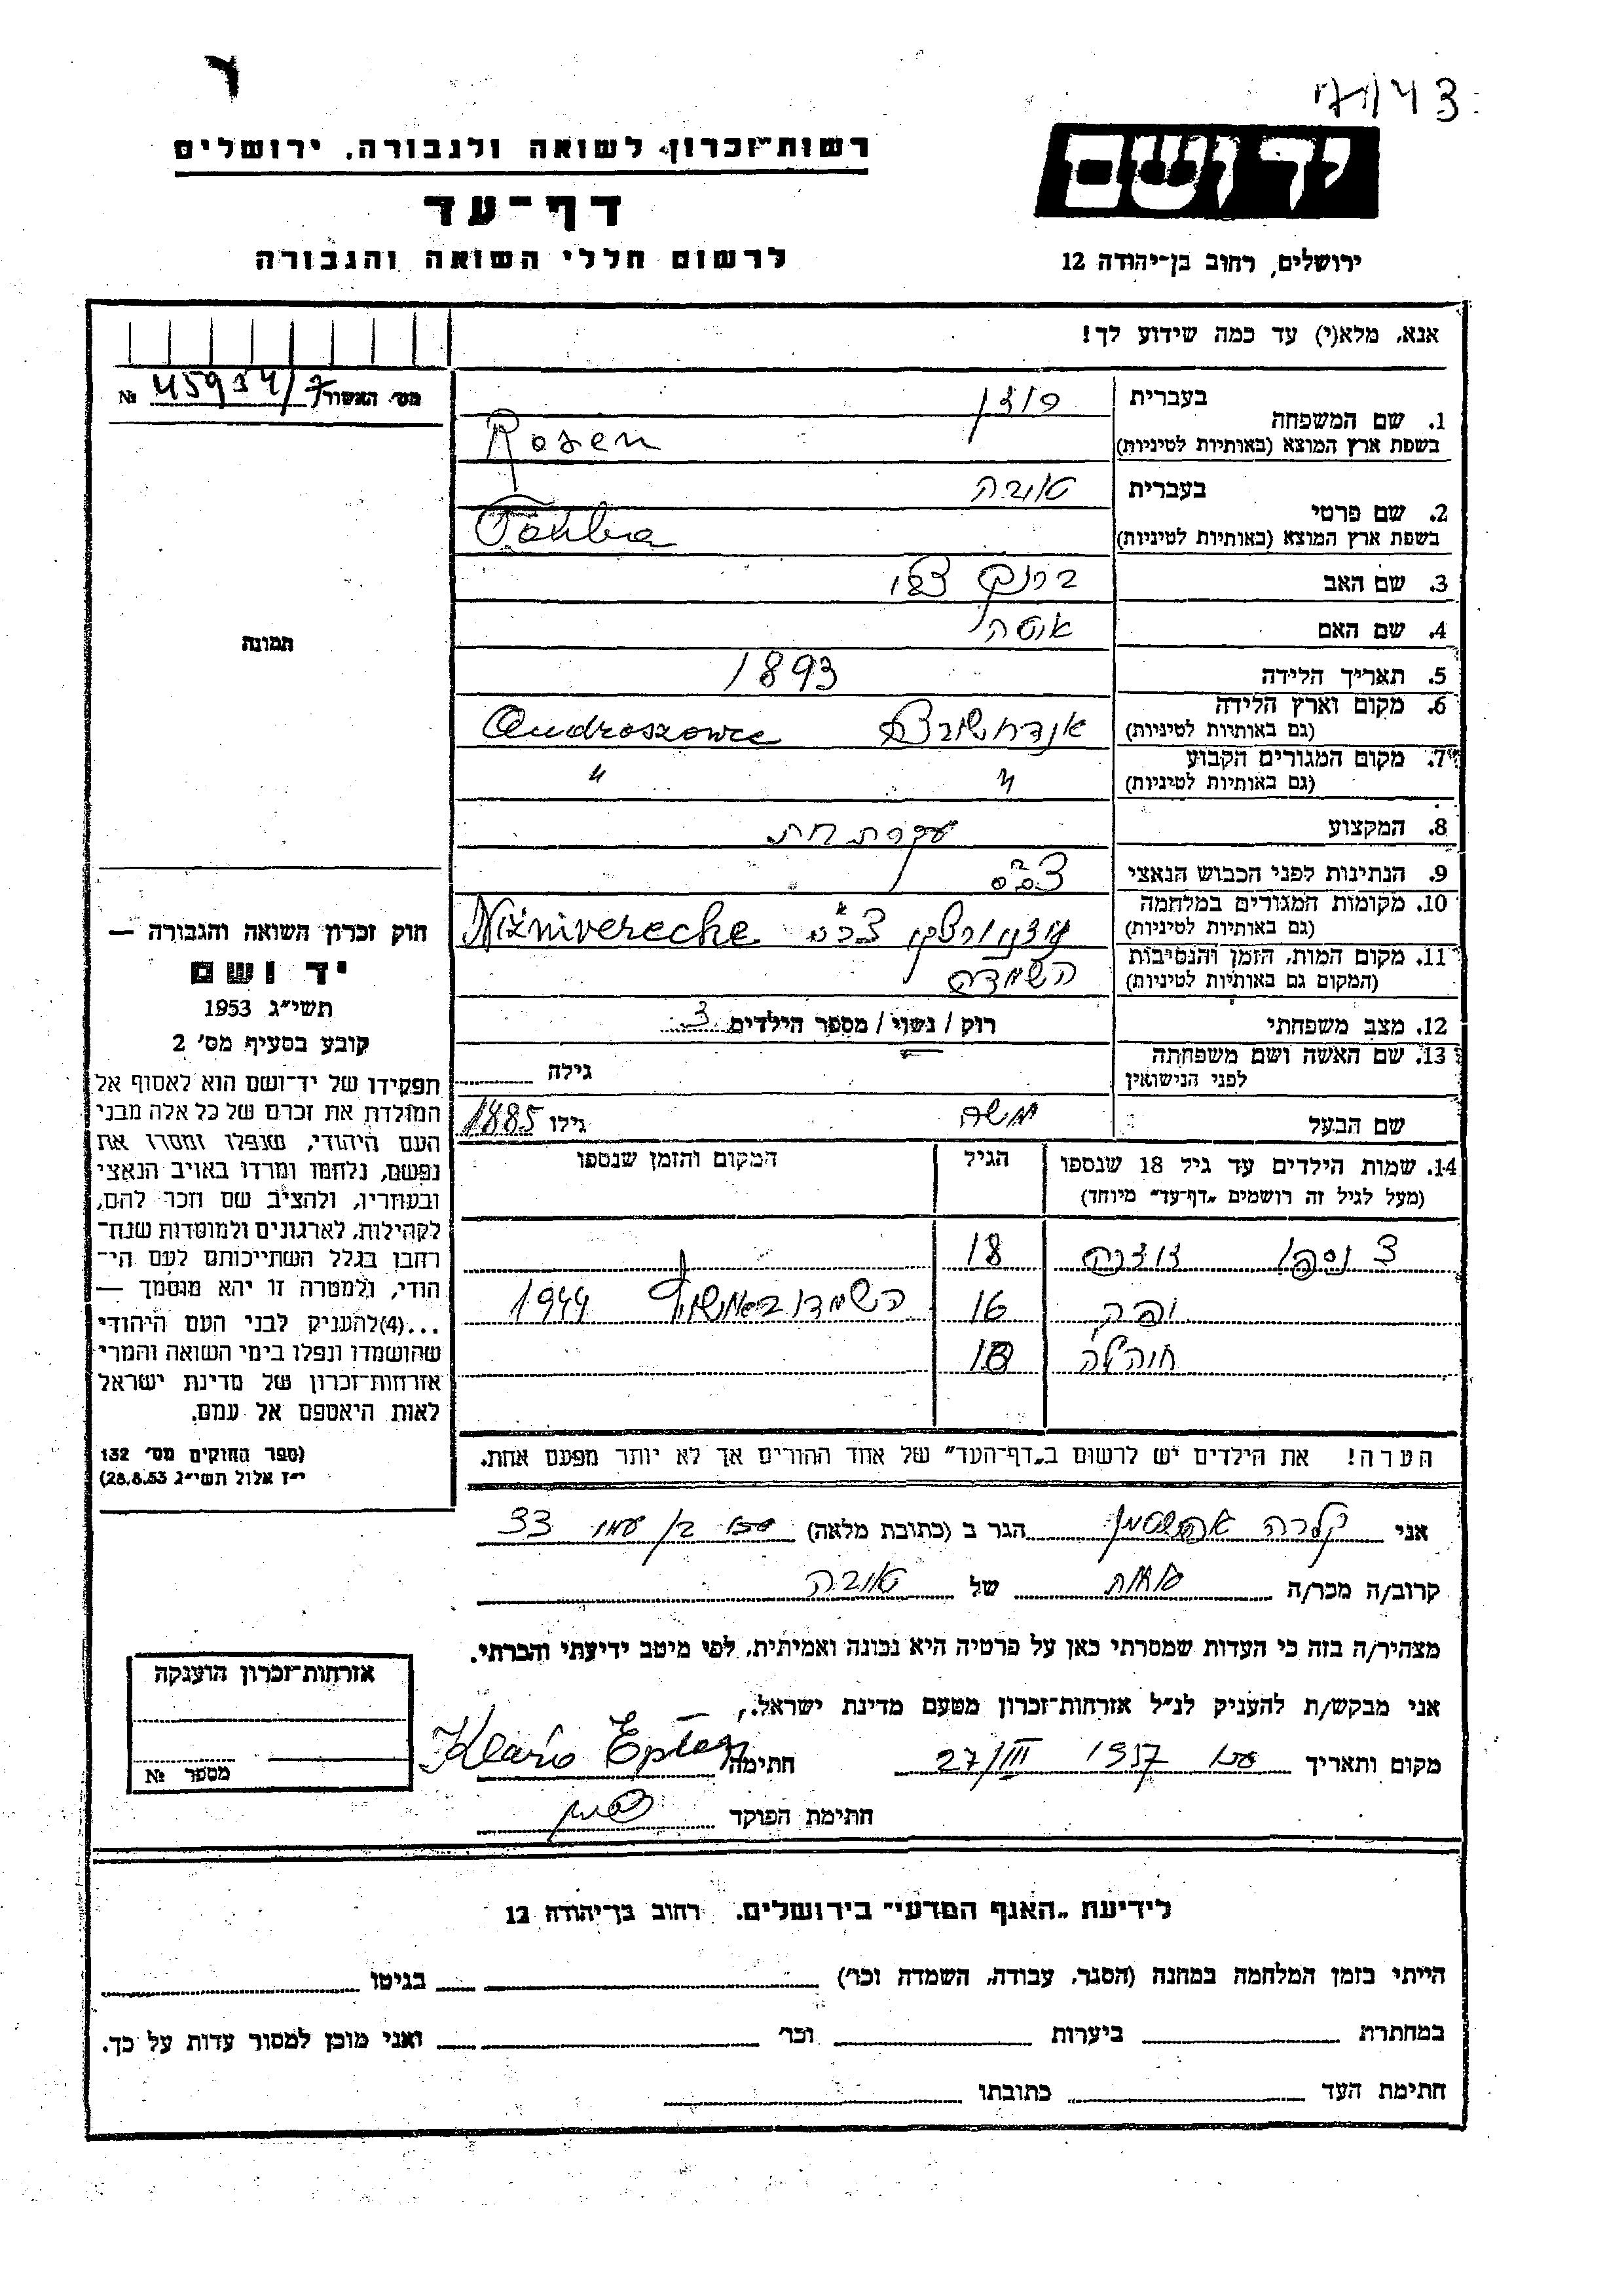 7143
רשות־זכרון לשואה ולגבורה, ירושלים
יד ושם
דף־עד
לרשום חללי השואה והגבורה
ירושלים, רחוב בן־יהודה 12
אנא, מלא(י) עד כמה שידוע לך!
מס׳ האשור 45934/7 №
1. שם המשפחה
בעברית
רוזן
בשפת ארץ המוצא (באותיות לטיניות)
Rosen
2. שם פרטי
בעברית
טובה
בשפת ארץ המוצא (באותיות לטיניות)
3. שם האב
4. שם האם
תמונה
5. תאריך הלידה 1893
6. מקום וארץ הלידה
(גם באותיות לטיניות)
Androszowce
7. מקום המגורים הקבוע
(גם באותיות לטיניות)
" "
8. המקצוע עקרת בית
9. הנתינות לפני הכבוש הנאצי צ׳כ׳
10. מקומות המגורים במלחמה
(גם באותיות לטיניות)
Nižnivereche
11. מקום המות, הזמן והנסיבות
(המקום גם באותיות לטיניות)
השמדה
12. מצב משפחתי רוק / נשוי / מספר הילדים 3
13. שם האשה ושם משפחתה
לפני הנישואין
גילה
שם הבעל משה גילו 1885
14. שמות הילדים עד גיל 18 שנספו
(מעל לגיל זה רושמים „דף־עד״ מיוחד)
הגיל
המקום והזמן שנספו
18
16 1944
חוה׳לה 18
הערה! את הילדים יש לרשום ב„דף־העד״ של אחד ההורים אך לא יותר מפעם אחת.
חוק זכרון השואה והגבורה —
יד ושם
תשי״ג 1953
קובע בסעיף מס׳ 2
תפקידו של יד־ושם הוא לאסוף אל
המולדת את זכרם של כל אלה מבני
העם היהודי, שנפלו ומסרו את
נפשם, נלחמו ומרדו באויב הנאצי
ובעוזריו, ולהציב שם וזכר להם,
לקהילות, לארגונים ולמוסדות שנח־
רבו בגלל השתייכותם לעם הי־
הודי, ולמטרה זו יהא מוסמך —
...(4)להעניק לבני העם היהודי
שהושמדו ונפלו בימי השואה והמרי
אזרחות־זכרון של מדינת ישראל
לאות היאספם אל עמם.
(ספר החוקים מס׳ 132
י״ז אלול תשי״ג 28.8.53)
אני קלרה אפשטיין הגר ב (כתובת מלאה) 33
קרוב/ה מכר/ה אחות של טובה
מצהיר/ה בזה כי העדות שמסרתי כאן על פרטיה היא נכונה ואמיתית, לפי מיטב ידיעתי והכרתי.
אני מבקש/ת להעניק לנ״ל אזרחות־זכרון מטעם מדינת ישראל.
מקום ותאריך 27/III 1957 חתימה
חתימת הפוקד
אזרחות־זכרון הוענקה
מספר №
לידיעת „האגף המדעי״ בירושלים. רחוב בן־יהודה 12
הייתי בזמן המלחמה במחנה (הסגר, עבודה, השמדה וכר׳) בגיטו
במחתרת ביערות וכר׳ ואני מוכן למסור עדות על כך.
חתימת העד כתובתו